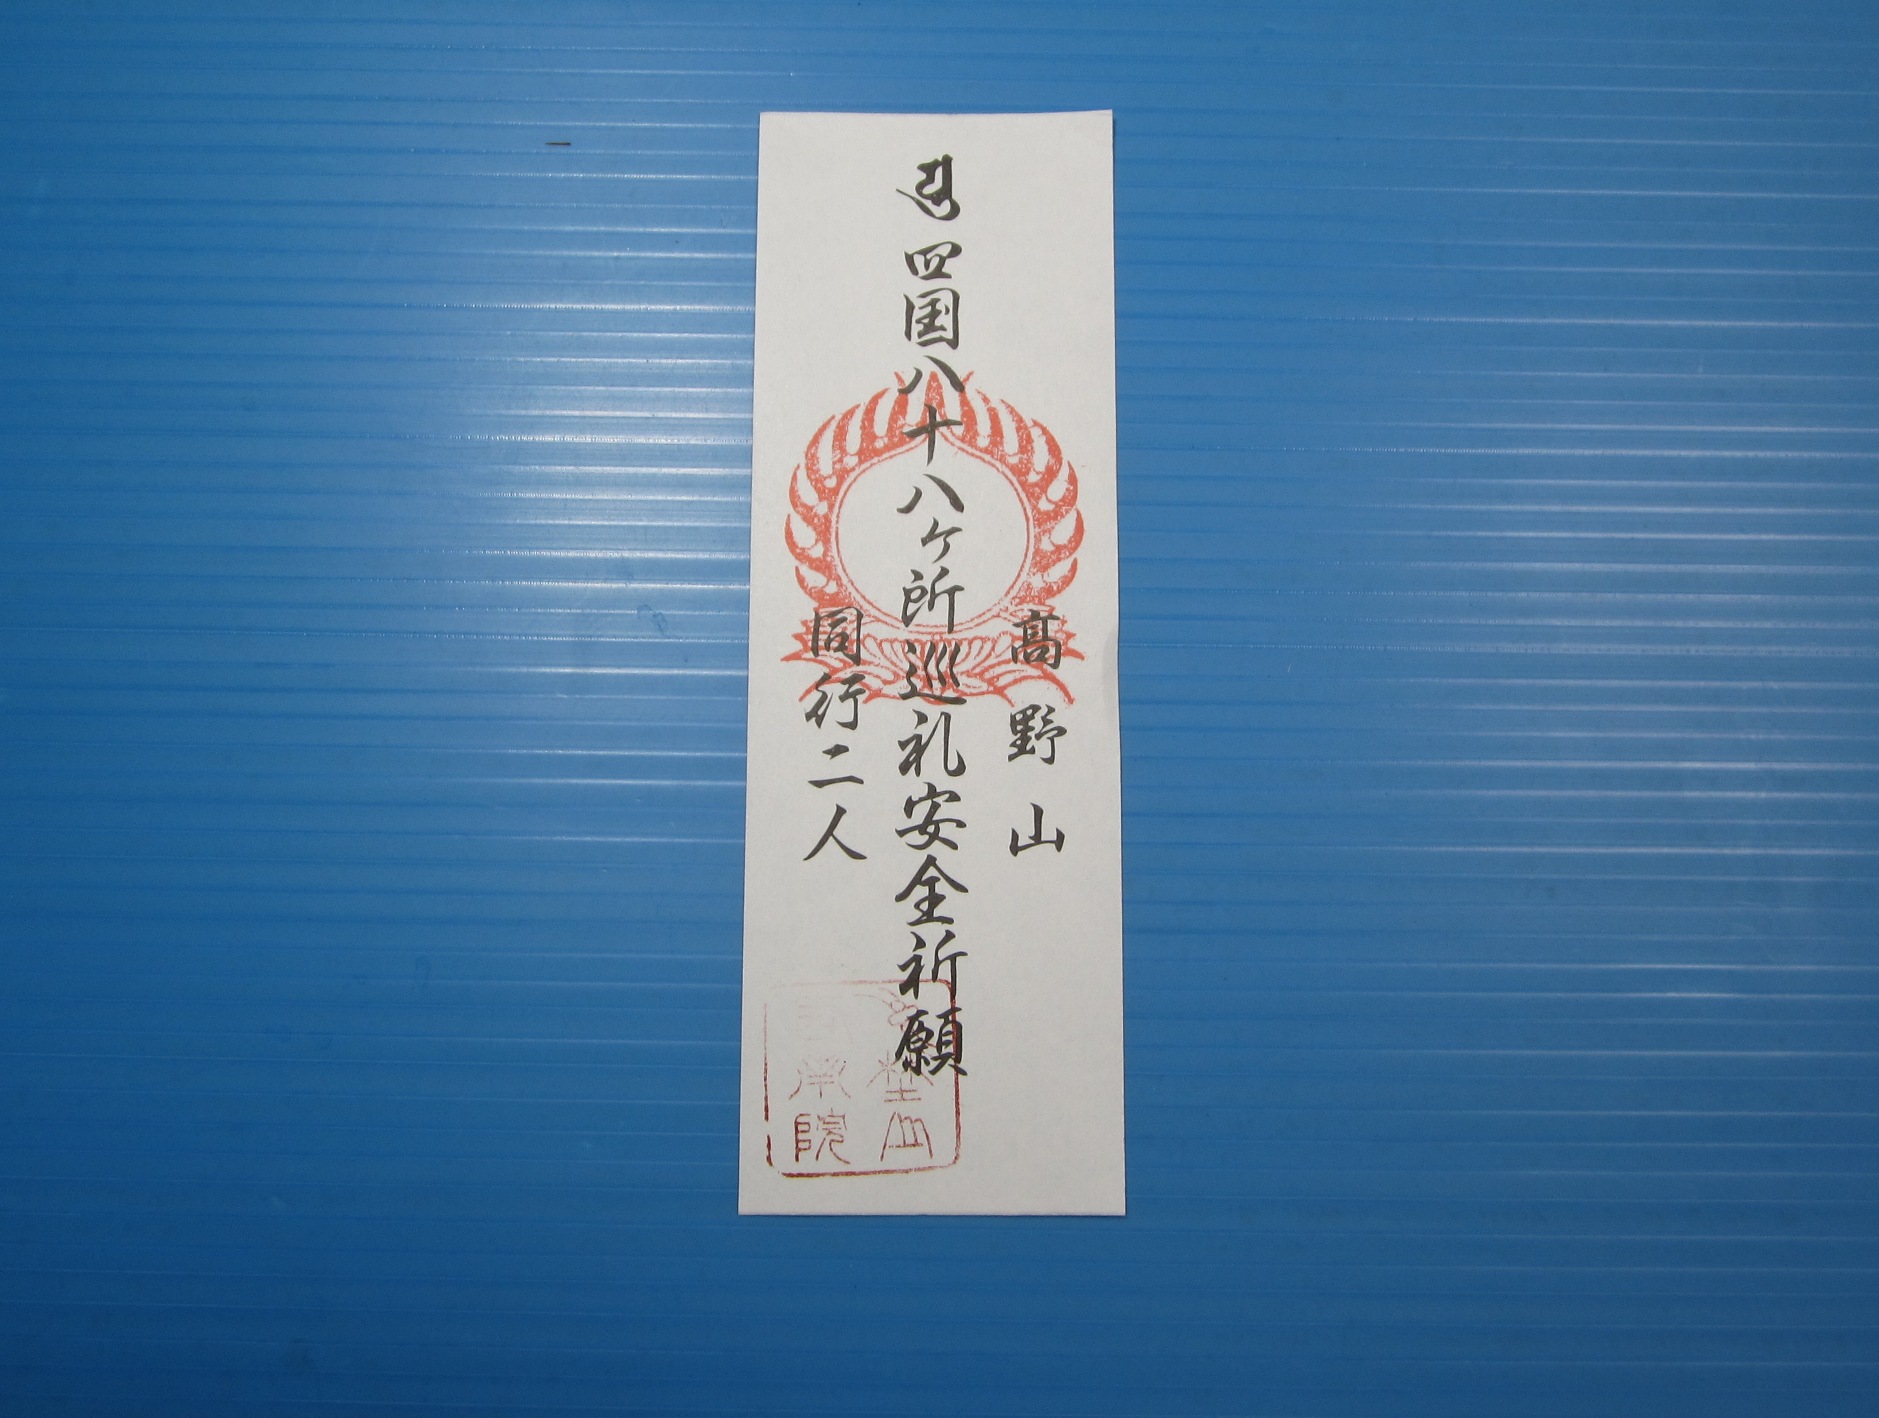 高野山
四国八十八ヶ所巡礼安全祈願
同行二人